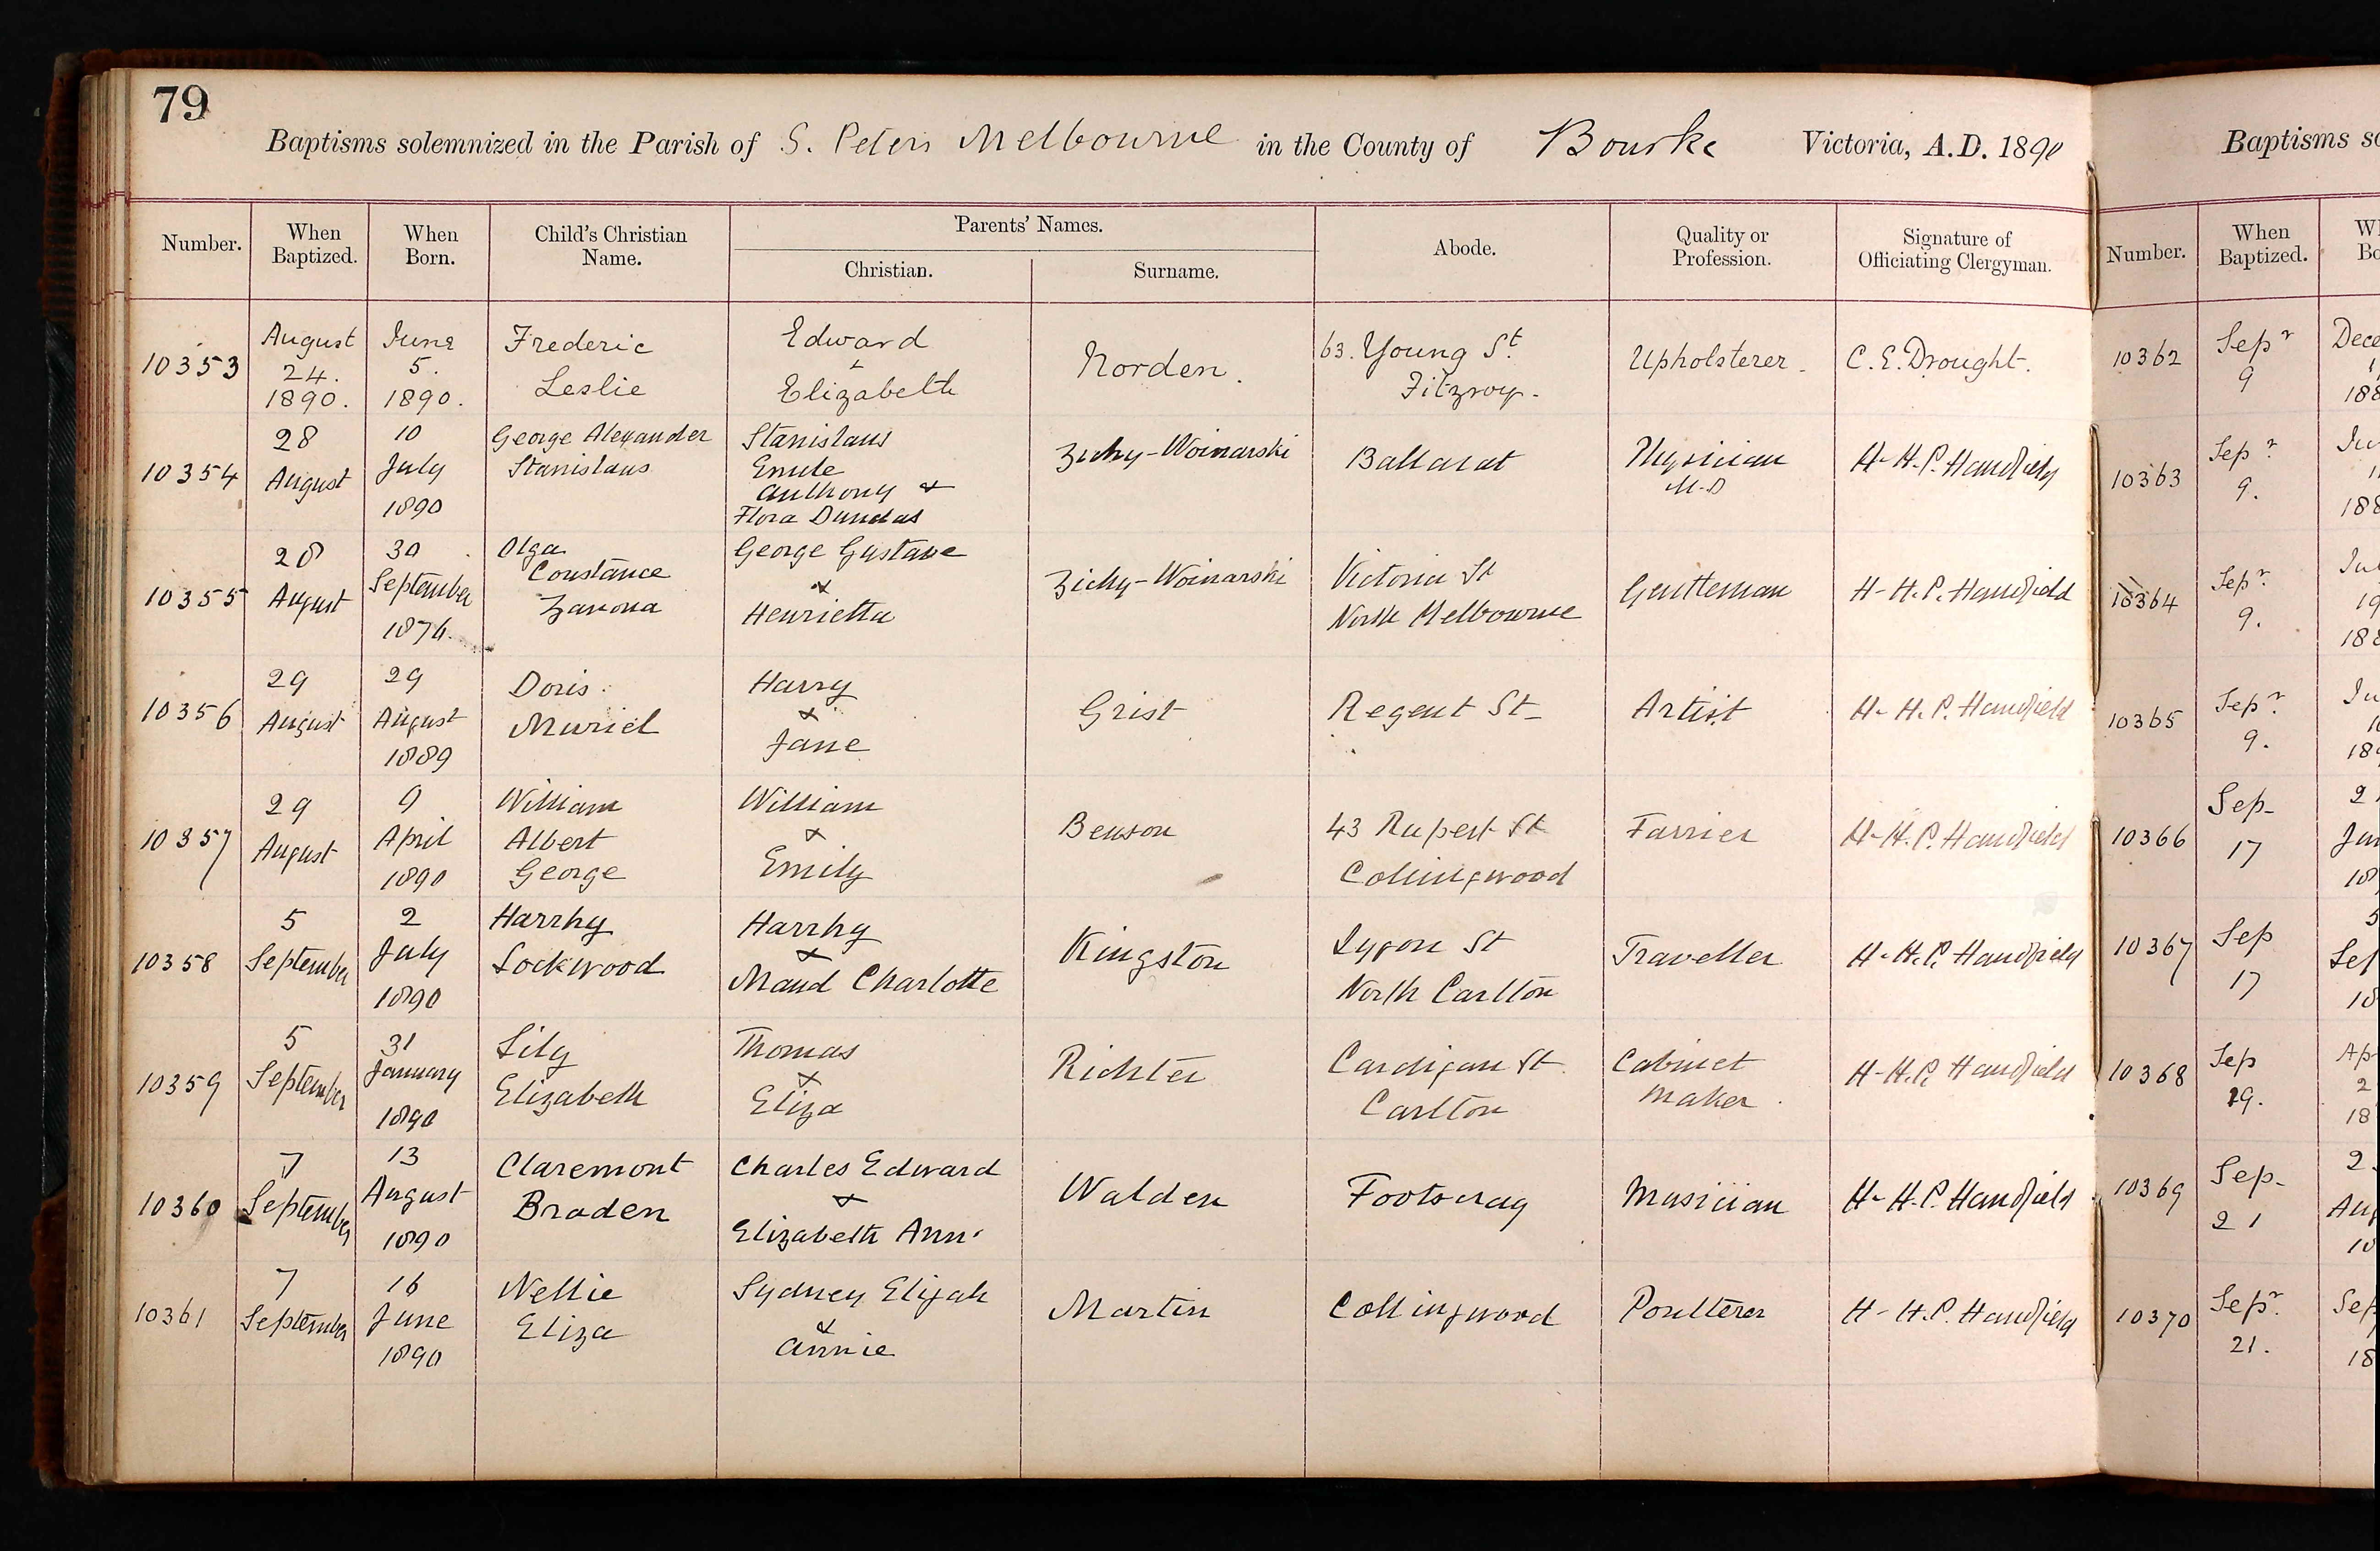 79
Baptisms solemnized in the Parish of S. Peters Melbourne in the County of Bourke Victoria, A.D. 1890
Number. When Baptized. When Born. Child's Christian Name. Parents' Names. Christian. Surname. Abode. Quality or Profession. Signature of Officiating Clergyman.
10353
August
24.
1890.
June
5.
1890.
Frederic
Leslie
Edward
&
Elizabeth
Norden.
63. Young St.
Fitzroy.
Upholsterer.
C. E. Drought.
10354
28
August
10
July
1890
George Alexander
Stanislaus
Stanislaus
Emile
Anthony &
Flora Dundas
Zichy-Woinarski
Ballarat
Physician
M.D
H. H. P. Handfield
10355
28
August
30
September
1876.
Olga
Constance
George Gustave
&
Henrietta
Zichy-Woinarski
Victoria St
North Melbourne
Gentleman
H. H. P. Handfield
10356
29
August
29
August
1889
Doris
Muriel
Harry
&
Jane
Grist
Regent St
Artist
H. H. P. Handfield
10357
29
August
9
April
1890
William
Albert
George
William
&
Emily
Benson
43 Rupert St
Collingwood
Farrier
H. H. P. Handfield
10358
5
September
2
July
1890
Harrhy
Lockwood
Harrhy
&
Maud Charlotte
Kingston
Lygon St
North Carlton
Traveller
H. H. P. Handfield
10359
5
September
31
January
1890
Lily
Elizabeth
Thomas
&
Eliza
Richter
Cardigan St
Carlton
Cabinet
Maker.
H. H. P. Handfield
10360
7
September
13
August
1890
Claremont
Braden
Charles Edward
&
Elizabeth Ann
Walden
Footscray
Musician
H. H. P. Handfield
10361
7
September
16
June
1890
Nellie
Eliza
Sydney Elijah
&
Annie
Martin
Collingwood
Poulterer
H. H. P. Handfield
Baptisms so
Number. When Baptized.
10362
Sepr
9
Dece
188
10363
Sepr
9.
188
10364
Sepr
9.
188
10365
Sepr
9.
18
10366
Sep
17
10367
Sep
17
Sep
10368
Sep
19.
Ap
2
18
10369
Sep
21
Aug
10370
Sepr.
21.
Sep
18